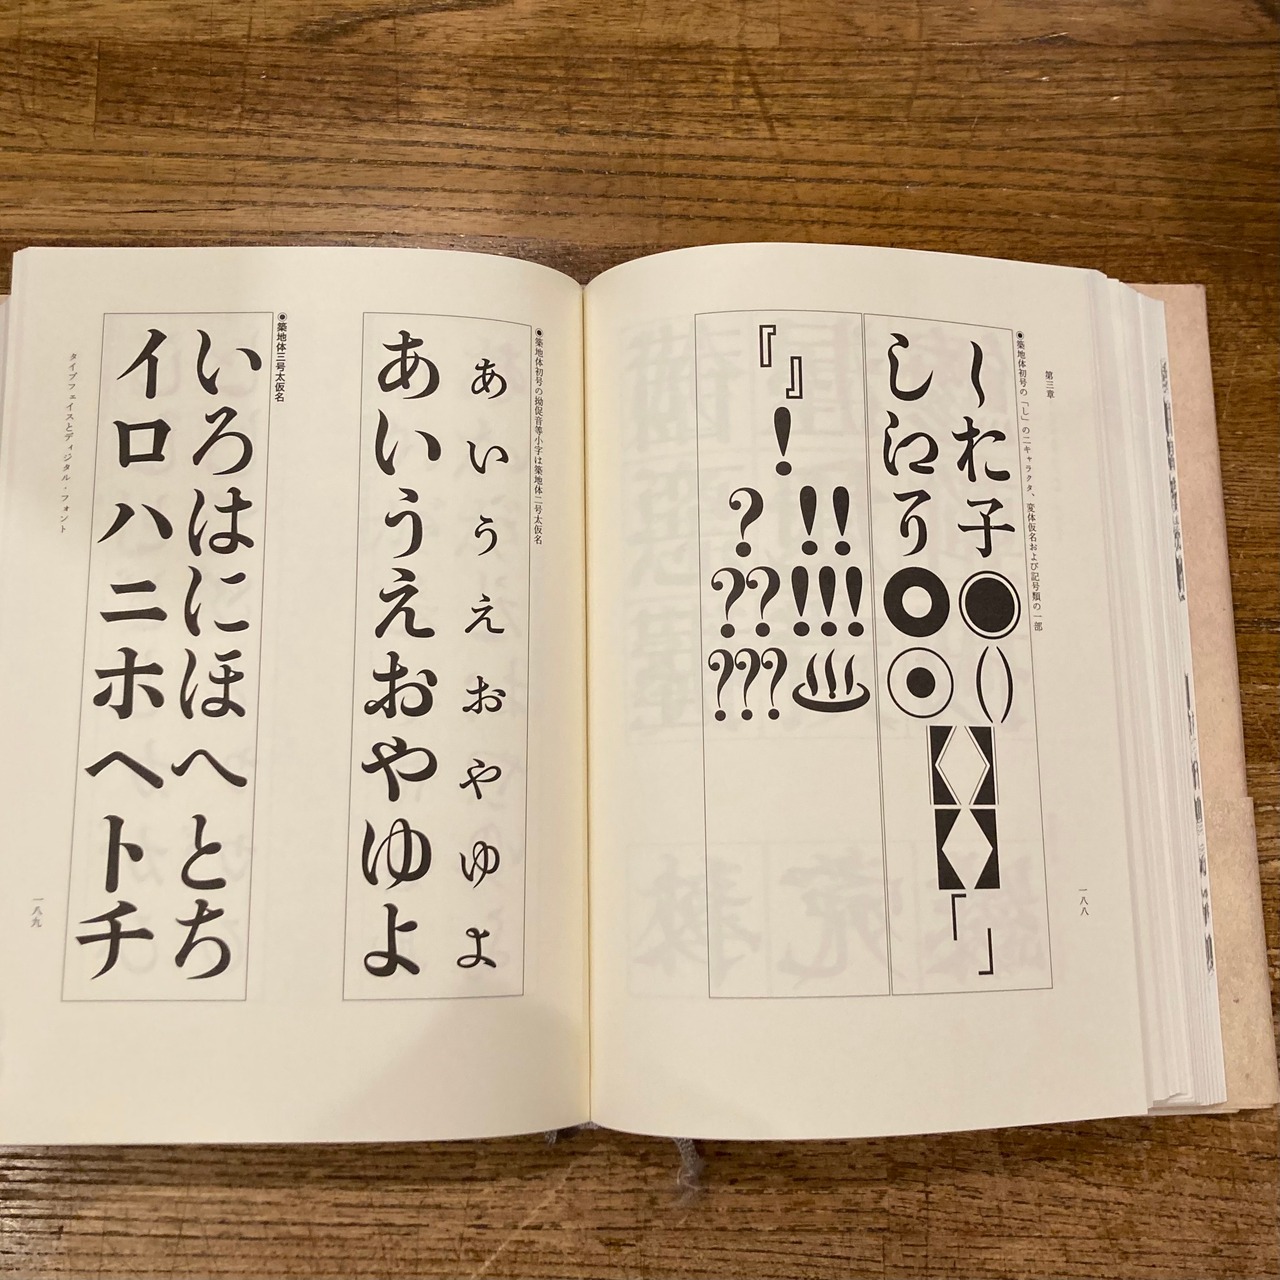 第三章
◉築地体初号の「し」の二キャラクタ、変体仮名および記号類の一部
し子●()「」
し◎◉
『』
!
!!!!!♨
??????
一八八
◉築地体初号の拗促音等小字は築地体二号太仮名
あいうえおやゆよ
あいうえおやゆよ
◉築地体三号太仮名
いろはにほへとち
イロハニホヘトチ
タイプフェイスとディジタル・フォント
一八九